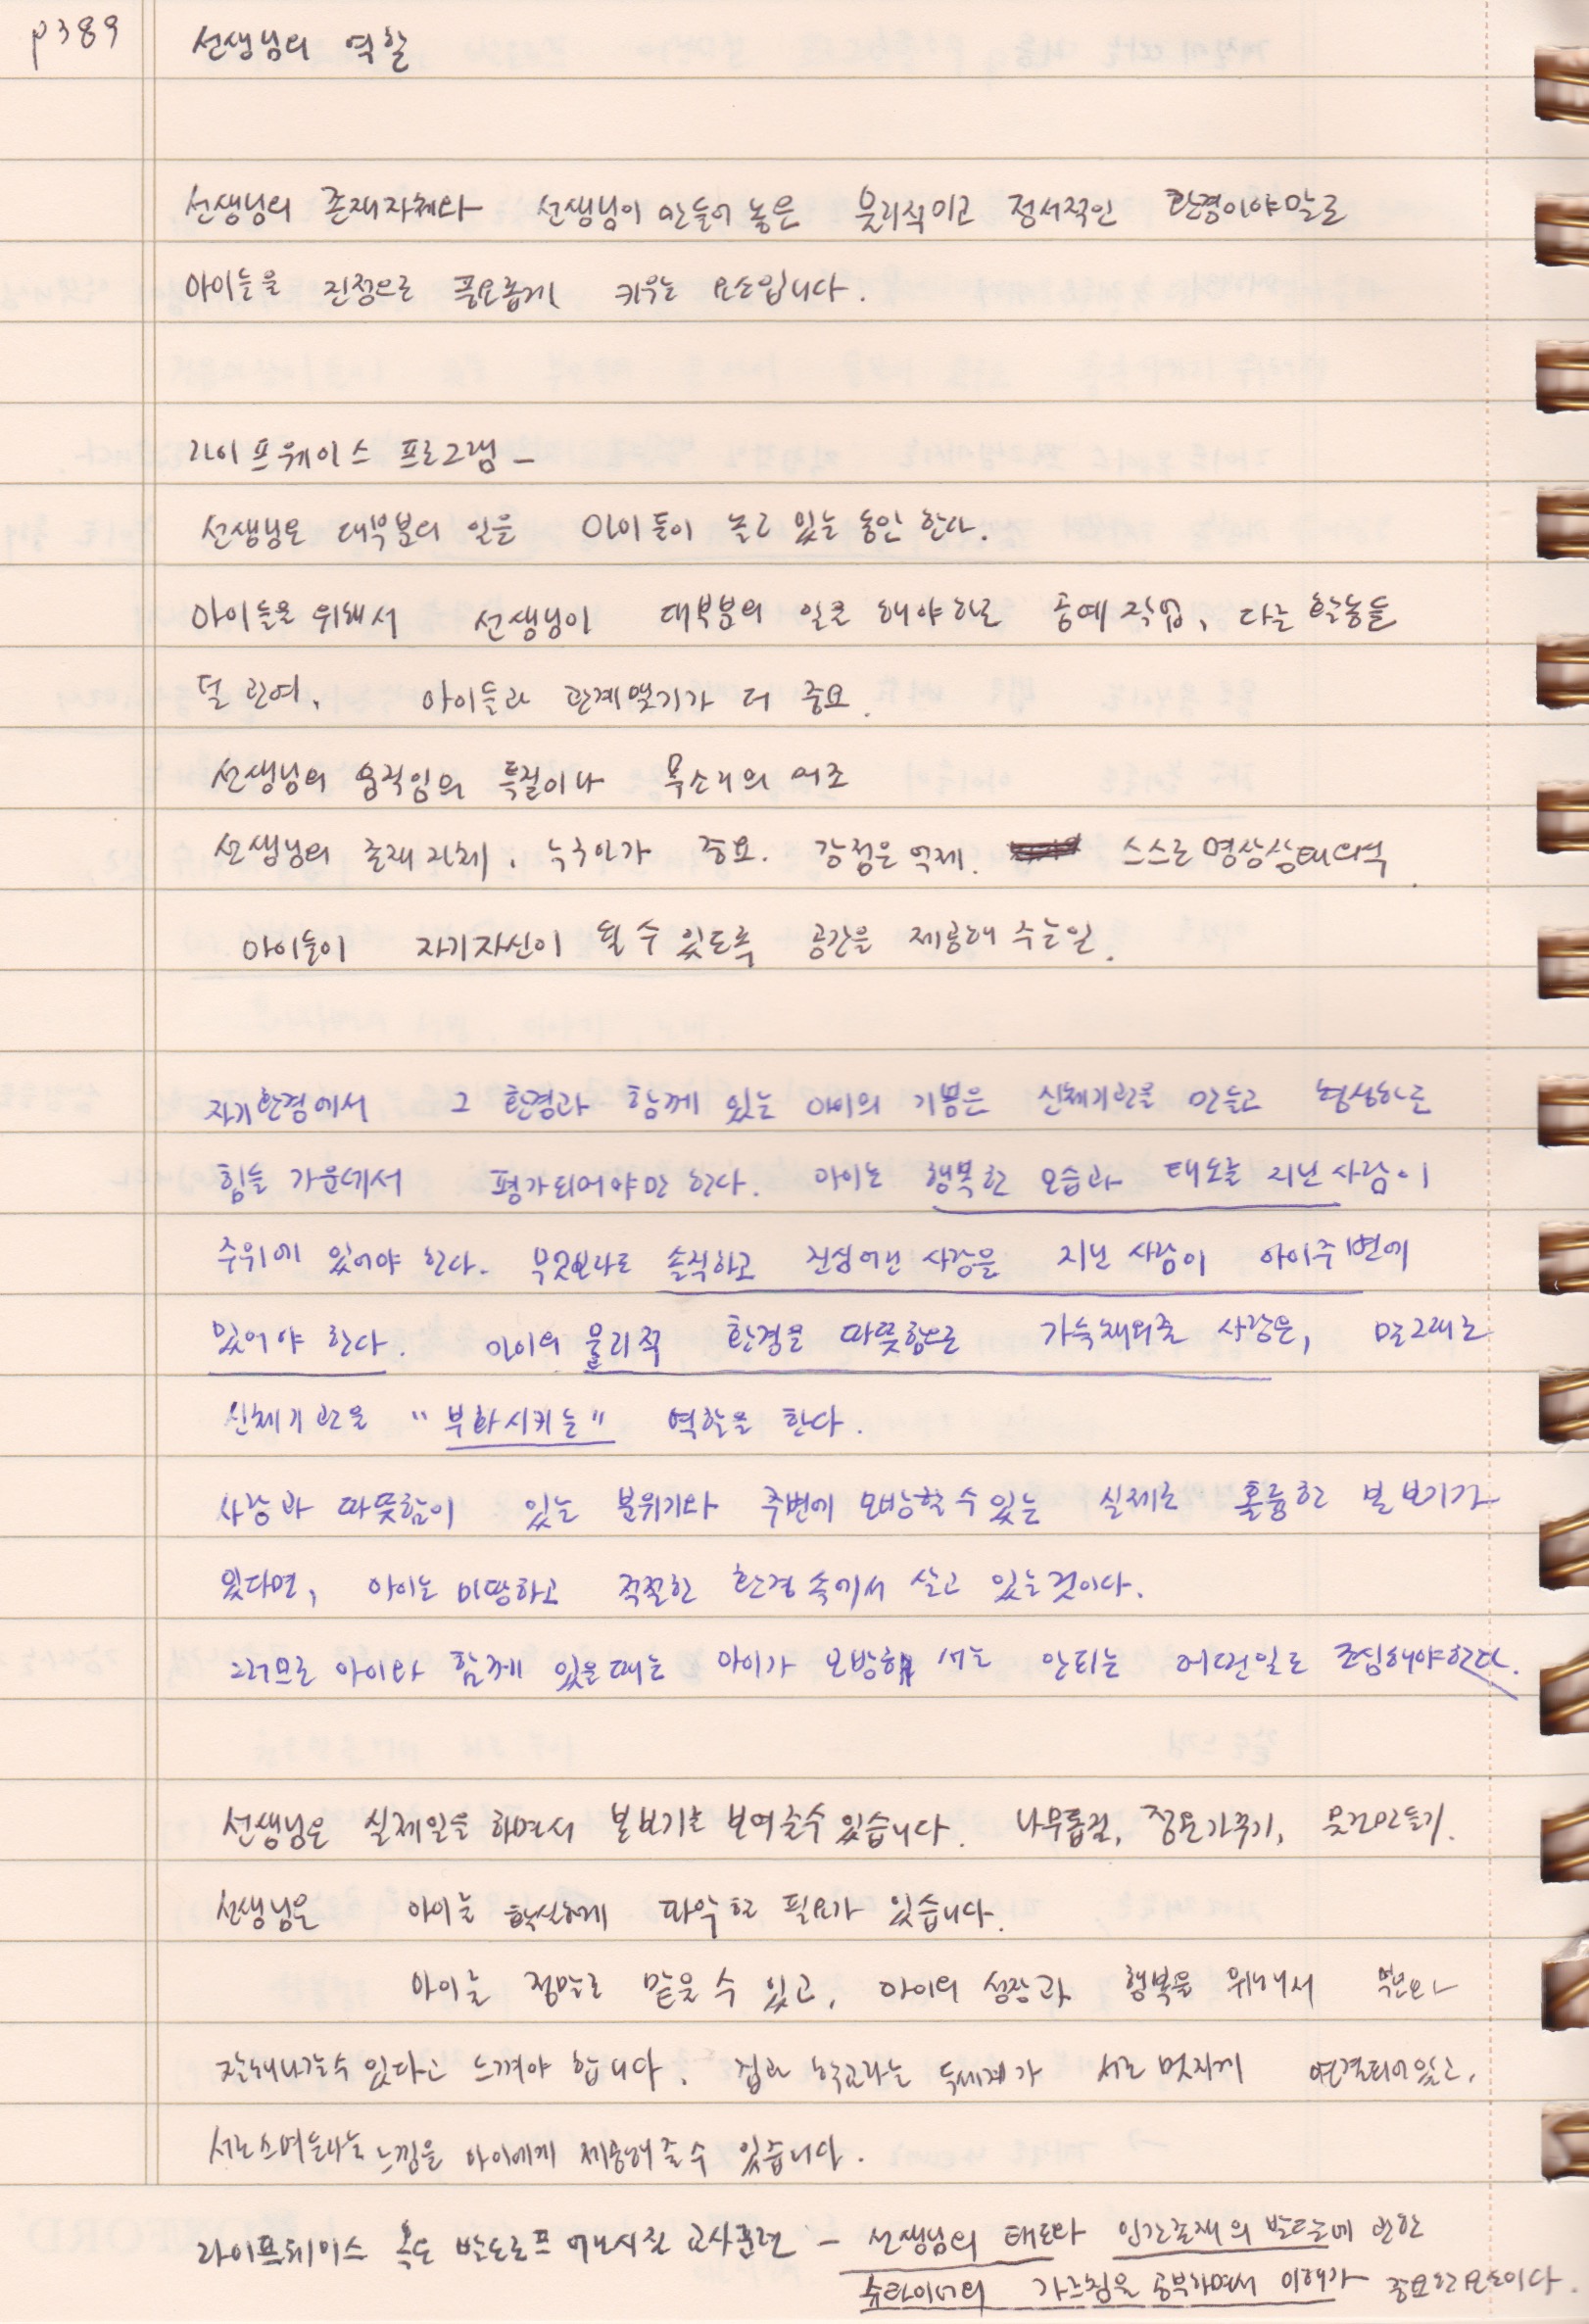 p389 선생님의 역할
선생님의 존재자체와 선생님이 만들어 놓은 물리적이고 정서적인 환경이야말로
아이들을 진정으로 풍요롭게 키우는 요소입니다.
라이프웨이스 프로그램 –
선생님은 대부분의 일을 아이들이 놀고 있는 동안 한다.
아이들을 위해서 선생님이 대부분의 일을 해야하는 공예 작업, 다른 활동들
덜 관여, 아이들과 관계맺기가 더 중요.
선생님의 움직임의 특질이나 목소리의 어조
선생님의 존재 자체, 가 중요. 감정은 억제. 스스로 명상상태
아이들이 자기자신이 될 수 있도록 공간을 제공해 주는일.
자기환경에서 그 환경과 함께 있는 아이의 기쁨은 신체기관을 만들고 형성하는
힘들 가운데서 평가되어야만 한다. 아이는 행복한 모습과 태도를 지닌 사람이
주위에 있어야 한다. 무엇보다도 솔직하고 진실어린 사랑을 지닌 사람이 아이주변에
있어야 한다. 아이의 물리적 환경을 따뜻함으로 가득채워준 사랑은, 말그대로
신체기관을 "부화시키는" 역할을 한다.
사랑과 따뜻함이 있는 분위기와 주변에 모방할 수 있는 실제로 훌륭한 본보기가
있다면, 아이는 마땅하고 적절한 환경 속에서 살고 있는것이다.
그러므로 아이와 함께 있을때는 아이가 모방해서는 안되는 어떤일도 조심해야한다.
선생님은 실제일을 하면서 본보기를 보여줄수 있습니다. 나무톱질, 정원가꾸기, 물건만들기.
선생님은 아이를 확실하게 파악할 필요가 있습니다.
아이를 정말로 맡을 수 있고, 아이의 성장과 행복을 위해서
잘해나갈수 있다고 느껴야 합니다. 집과 학교라는 두세계가 서로 멋지게 연결되어있고,
서로스며든다는 느낌을 아이에게 제공해줄수 있습니다.
라이프웨이스 혹은 발도르프 교사훈련 – 선생님의 태도와 인간존재의 발달에 관한
슈타이너의 가르침을 공부하면서 이해가 중요한 요소이다.